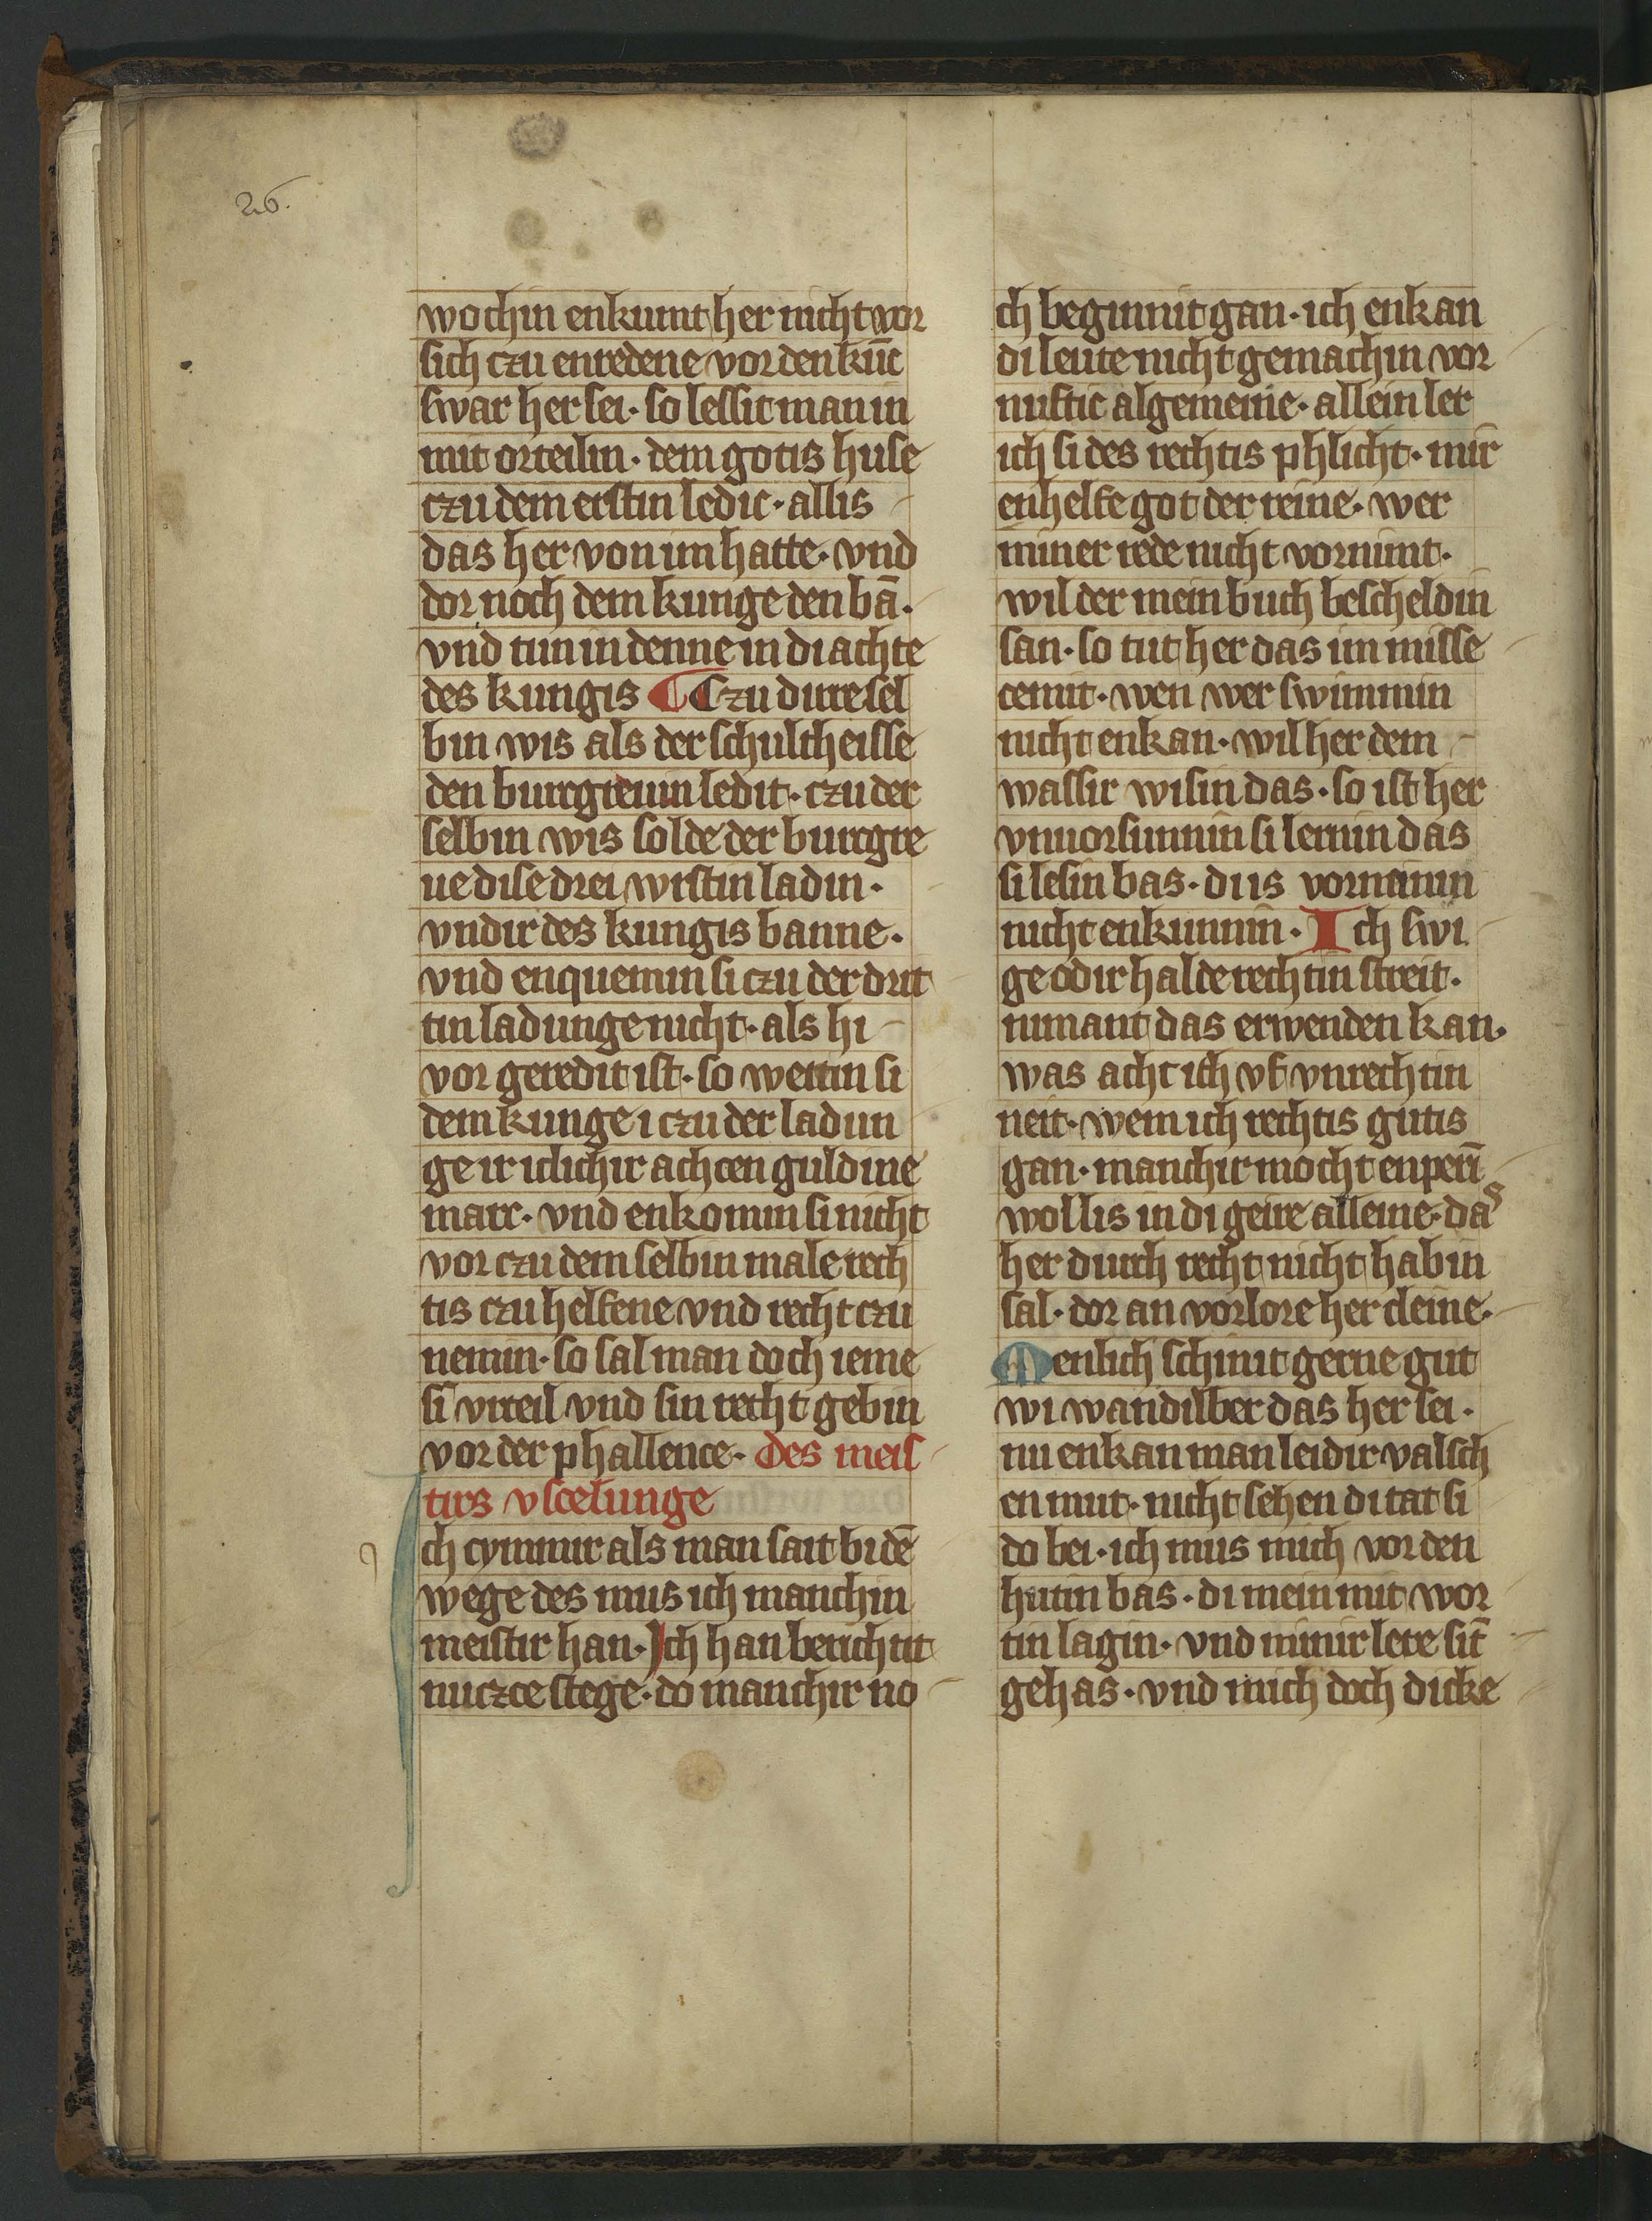 26.
wochin enkumt her nicht vor
sich czu enredene vor den kūc
swar her sei · so lessit man in
mit orteilin · dem gotis huse
czu dem erstin ledic · allis
das her von im hatte · vnd
dor noch dem kunge den bā ·
vnd tun in denne in di achte
des kungis ¶ Czu dirre sel
bin wis als der schultheisse
den burcgreuin ledit · czu der
selbin wis solde der burcgre
ue dise drei wrstin ladin ·
vndir des kungis banne ·
vnd enquemin si czu der drit
tin ladunge nicht · als hi
vor geredit ist · so wettin si
dem kunge i czu der ladun
ge ir iclichir achcen guldine
marc · vnd enkomin si nicht
vor czu dem selbin male rech
tis czu helfene vnd recht czu
nemin · so sal man doch ieme
sī vrteil vnd sin recht gebin
vor der phallence · Des meis
tirs vscelunge
Ich cymmir als man sait bi dē
wege des mus ich manchin
meistir han · Ich han berichtit
nuczce stege · do manchir no
ch beginnit gan · ich enkan
di leute nicht gemachin vor
nuftic algemeine · allein ler
ich si des rechtis phlicht · mir
enhelfe got der reine · wer
miner rede nicht vornimt ·
wil der mein buch bescheldin
san · so tut her das im misse
cemit · wen wer swimmin
nicht enkan · wil her dem
wassir wisin das · so ist her
vnuorsunnin si lernin das
si lesin bas · di is vornemin
nicht enkunnin · Ich swi
ge odir halde rechtin streit ·
nimant das erwenden kan ·
was acht ich vf vnrechtin
neit · wem ich rechtis gutis
gan · manchir mocht enperī
wol lis in di geire alleine · das
her durch recht nicht habin
sal · dor an vorlore her cleine ·
Menlich schinit gerne gut
wi wandilber das her sei ·
nu enkan man leidir valsch
en mut · nicht sehen di tat si
do bei · ich mus mich vor den
hutin bas · di mein mit wor
tin lagin · vnd minir lere sīt
gehas · vnd mich doch dicke